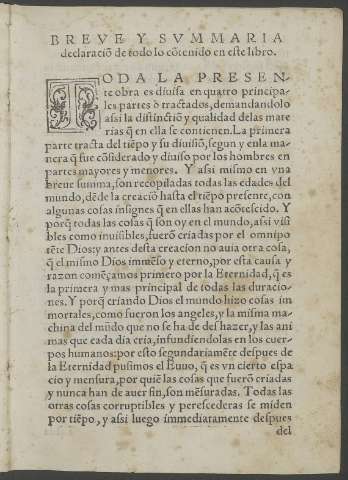 BREVE Y SVMMARIA
declaraciõ de todo lo cõtenido en este libro.
TODA LA PRESEN-
te obra es diuisa en quatro principa-
les partes ò tractados, demandandolo
assi la distinctiõ y qualidad delas mate
rias q̃ en ella se contienen. La primera
parte tracta del tiẽpo y su diuisiõ, segun y enla ma-
nera q̃ fue cõsiderado y diuiso por los hombres en
partes mayores y menores. Y assi mismo en vna
breue summa, son recopiladas todas las edades del
mundo, dẽde la creaciõ hasta el tiẽpo presente, con
algunas cosas insignes q̃ en ellas han acõtescido. Y
porq̃ todas las cosas q̃ son oy en el mundo, assi visi
bles como inuisibles, fuerõ criadas por el omnipo
tẽte Dios: y antes desta creacion no auia otra cosa,
q̃ el mismo Dios immẽso y eterno, por esta causa y
razon comẽçamos primero por la Eternidad, q̃ es
la primera y mas principal de todas las duracio-
nes. Y porq̃ criando Dios el mundo hizo cosas im
mortales, como fueron los angeles, y la misma ma-
china del mũdo que no se ha de deshazer, y las ani
mas que cada dia cria, infundiendolas en los cuer-
pos humanos: por esto segundariamẽte despues de
la Eternidad pusimos el Euuo, q̃ es vn cierto espa
cio y mensura, por quiẽ las cosas que fuerõ criadas
y nunca han de auer fin, son mẽsuradas. Todas las
otras cosas corruptibles y perescederas se miden
por tiẽpo, y assi luego immediatamente despues
del